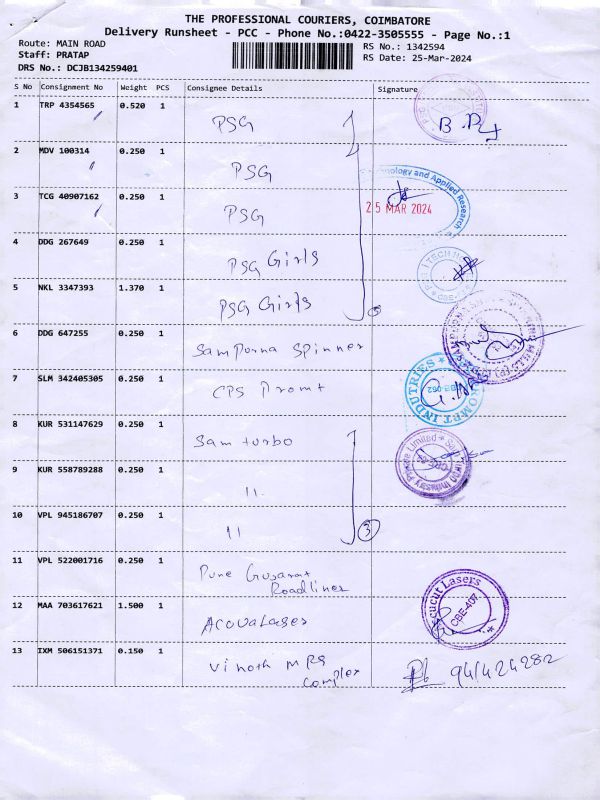 THE PROFESSIONAL COURIERS, COIMBATORE
Delivery Runsheet - PCC - Phone No.:0422-3505555 - Page No.:1
Route: MAIN ROAD
Staff: PRATAP
DRS No.: DCJB134259401
RS No.: 1342594
RS Date: 25-Mar-2024
S No Consignment No Weight PCS Consignee Details Signature
1 TRP 4354565 0.520 1 PSG
2 MDV 100314 0.250 1 PSG
3 TCG 40907162 0.250 1 PSG
Technology and Applied Research
25 MAR 2024
4 DDG 267649 0.250 1 PSG Girls
5 NKL 3347393 1.370 1 PSG Girls
6 DDG 647255 0.250 1 Sampurna Spinner
7 SLM 342405305 0.250 1 CPS Promt
8 KUR 531147629 0.250 1 Sam turbo
9 KUR 558789288 0.250 1 11
10 VPL 945186707 0.250 1 11 3
11 VPL 522001716 0.250 1 Pune Gujarat
Roadlines
12 MAA 703617621 1.500 1
Lasers
CBE-407
13 IXM 506151371 0.150 1 Vinoth MRS
Complex